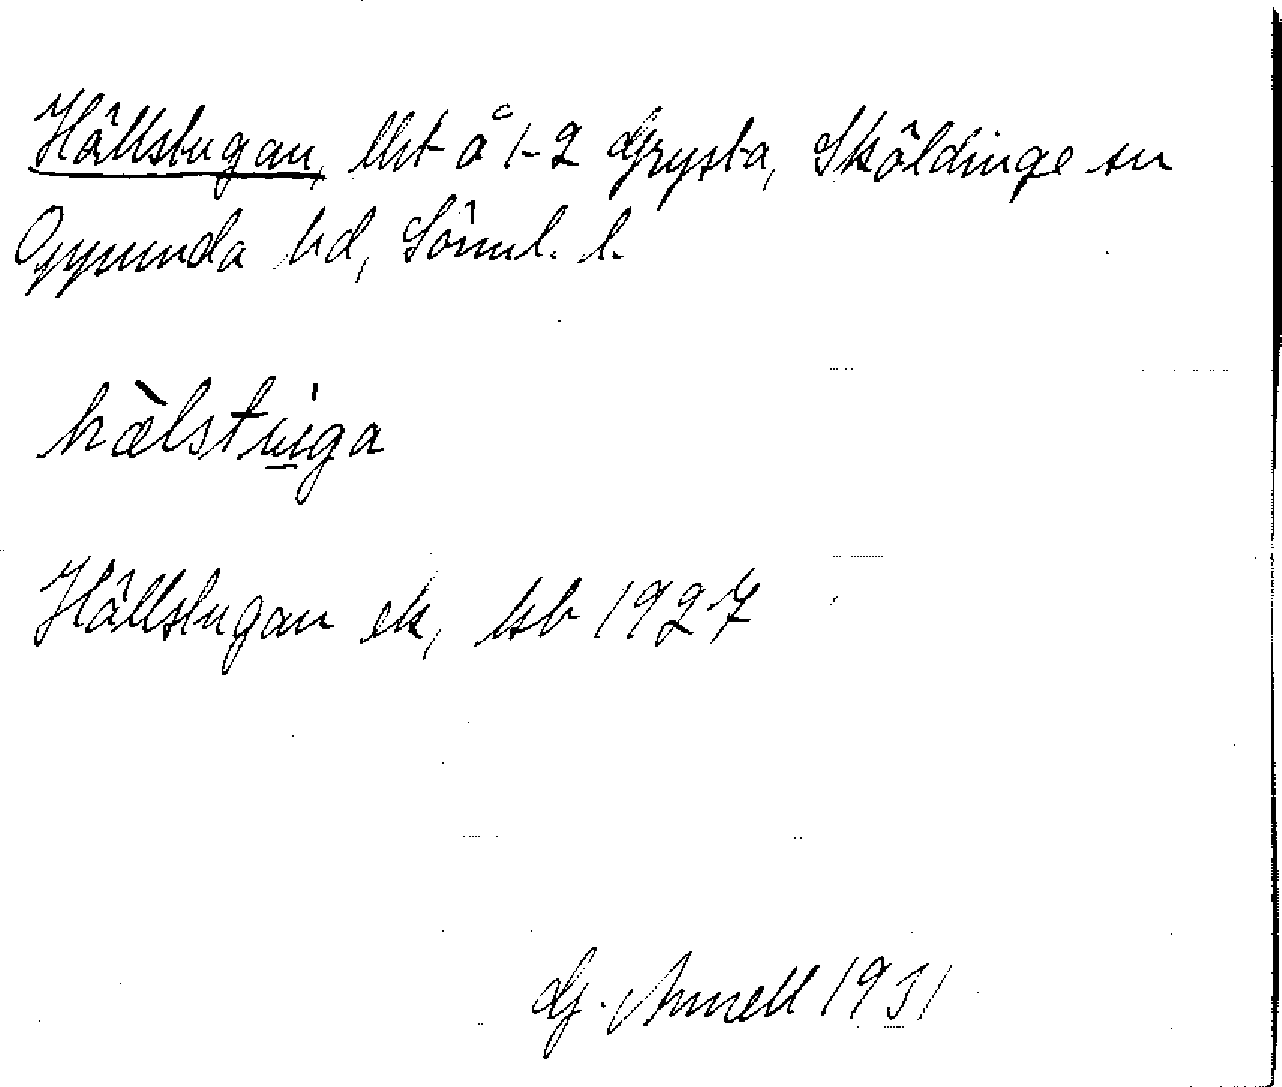 Hällstugan, lht å 1-2 Grysta, Sköldinge sn
Oppunda hd, Södml. l.
hælstuga
Hällstugan ek, lsb 1927
G. Annell 1931